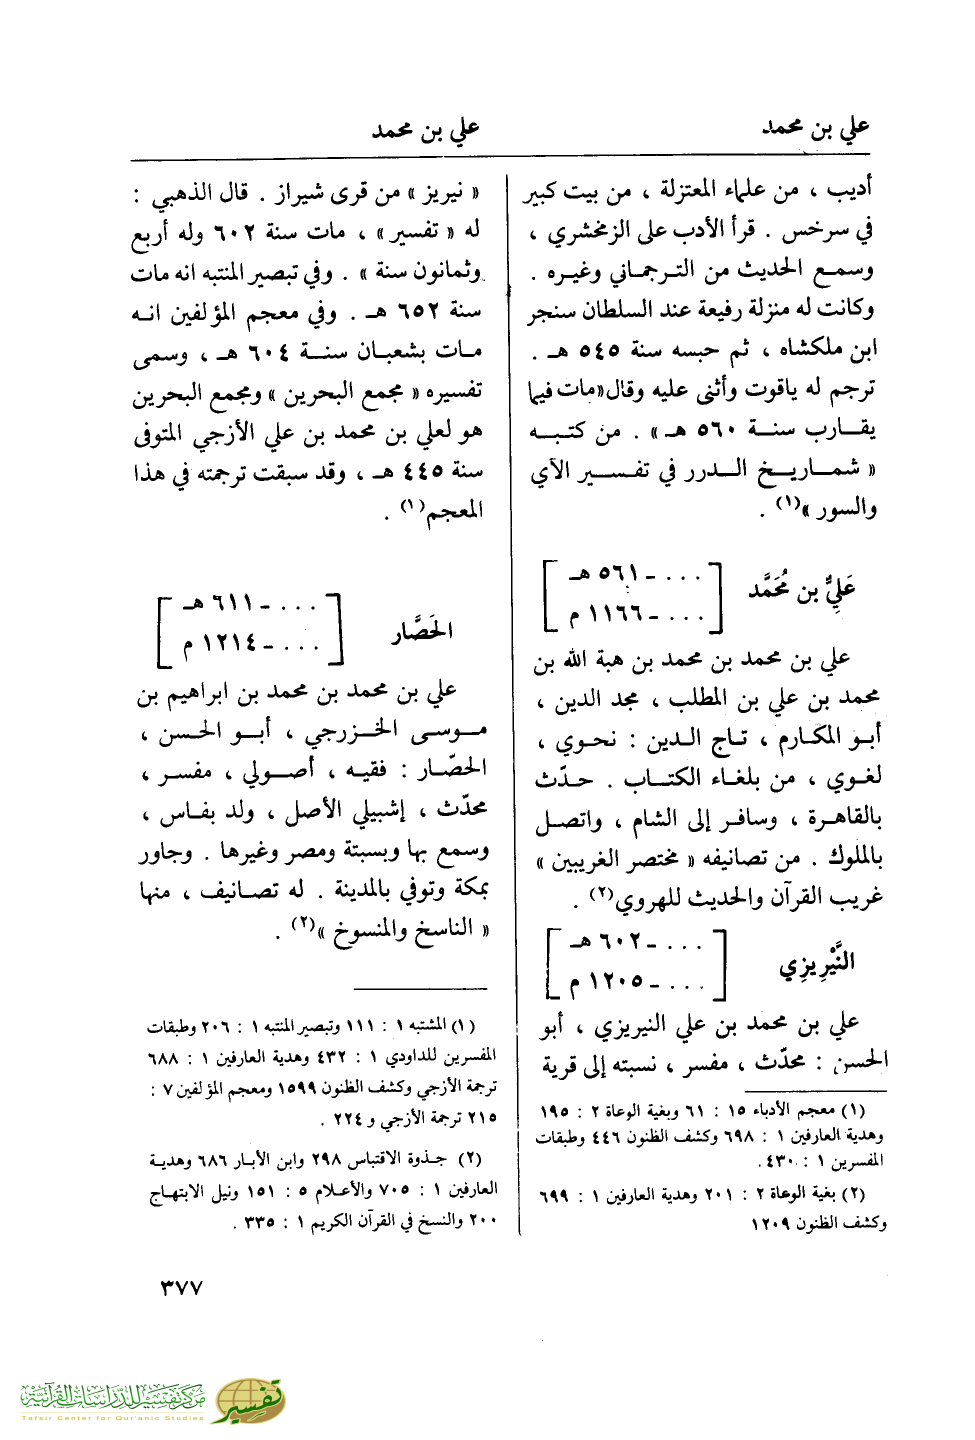 علي بن محمد
علي بن محمد
أديب ، من علماء المعتزلة ، من بيت كبير
في سرخس . قرأ الأدب على الزمخشري ،
وسمع الحديث من الترجماني وغيره .
وكانت له منزلة رفيعة عند السلطان سنجر
ابن ملكشاه ، ثم حبسه سنة ٥٤٥ هـ .
ترجم له ياقوت وأثنى عليه وقال «مات فيما
يقارب سنة ٥٦٠ هـ» . من كتبه
« شماريخ الدرر في تفسير الآي
والسور »(١) .
عَلِيٌّ بن مُحَمَّد
[ . . . ـ ٥٦١ هـ
. . . ـ ١١٦٦ م ]
علي بن محمد بن محمد بن هبة الله بن
محمد بن علي بن المطلب ، مجد الدين ،
أبو المكارم ، تاج الدين : نحوي ،
لغوي ، من بلغاء الكتاب . حدّث
بالقاهرة ، وسافر إلى الشام ، واتصل
بالملوك . من تصانيفه « مختصر الغريبين »
غريب القرآن والحديث للهروي(٢) .
النَّيْرِيزِي
[ . . . ـ ٦٠٢ هـ
. . . ـ ١٢٠٥ م ]
علي بن محمد بن علي النيريزي ، أبو
الحسن : محدّث ، مفسر ، نسبته إلى قرية
(١) معجم الأدباء ١٥ : ٦١ وبغية الوعاة ٢ : ١٩٥
وهدية العارفين ١ : ٦٩٨ وكشف الظنون ٤٤٦ وطبقات
المفسرين ١ : ٤٣٠ .
(٢) بغية الوعاة ٢ : ٢٠١ وهدية العارفين ١ : ٦٩٩
وكشف الظنون ١٢٠٩
« نيريز » من قرى شيراز . قال الذهبي :
له « تفسير » ، مات سنة ٦٠٢ وله أربع
وثمانون سنة » . وفي تبصير المنتبه انه مات
سنة ٦٥٢ هـ . وفي معجم المؤلفين انه
مات بشعبان سنة ٦٠٤ هـ ، وسمى
تفسيره « مجمع البحرين » ومجمع البحرين
هو لعلي بن محمد بن علي الأزجي المتوفى
سنة ٤٤٥ هـ ، وقد سبقت ترجمته في هذا
المعجم(١) .
الحَصَّار
[ . . . ـ ٦١١ هـ
. . . ـ ١٢١٤ م ]
علي بن محمد بن محمد بن ابراهيم بن
موسى الخزرجي ، أبو الحسن ،
الحصّار : فقيه ، أصولي ، مفسر ،
محدّث ، إشبيلي الأصل ، ولد بفاس ،
وسمع بها وبسبتة ومصر وغيرها . وجاور
بمكة وتوفي بالمدينة . له تصانيف ، منها
« الناسخ والمنسوخ »(٢) .
(١) المشتبه ١ : ١١١ وتبصير المنتبه ١ : ٢٠٦ وطبقات
المفسرين للداودي ١ : ٤٣٢ وهدية العارفين ١ : ٦٨٨
ترجمة الأزجي وكشف الظنون ١٥٩٩ ومعجم المؤلفين ٧ :
٢١٥ ترجمة الأزجي و ٢٢٤ .
(٢) جذوة الاقتباس ٢٩٨ وابن الأبار ٦٨٦ وهدية
العارفين ١ : ٧٠٥ والأعلام ٥ : ١٥١ ونيل الابتهاج
٢٠٠ والنسخ في القرآن الكريم ١ : ٣٣٥ .
٣٧٧
مركز تفسير للدراسات القرآنية
Tafsir Center for Qur'anic Studies
تفسير